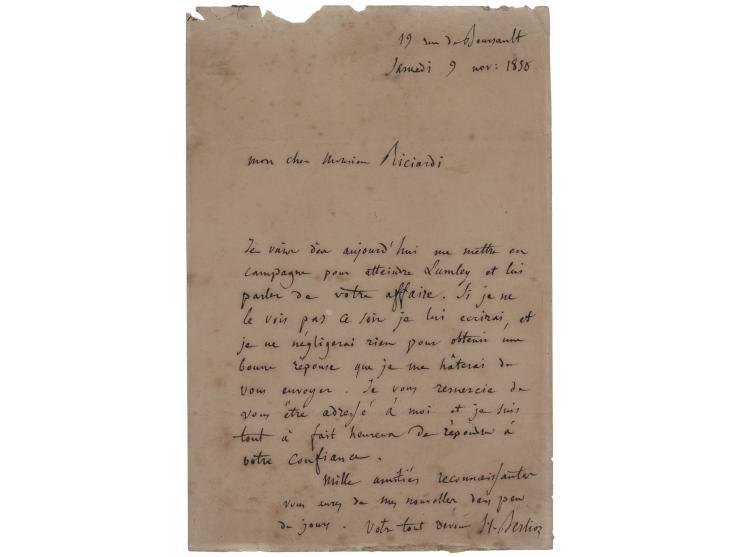 19 rue de Boursault
Samedi 9 nov: 1850
mon cher Monsieur Riciardi
Je vais dès aujourd'hui me mettre en
campagne pour atteindre Lumley et lui
parler de votre affaire. Si je ne
le vois pas ce soir je lui ecrirai, et
je ne négligerai rien pour obtenir une
bonne réponse que je me hâterai de
vous envoyer. Je vous remercie de
vous être adressé à moi et je suis
tout à fait heureux de répondre à
votre confiance.
Mille amitiés reconnaissantes
vous aurez de mes nouvelles dans peu
de jours. Votre tout dévoué H. Berlioz